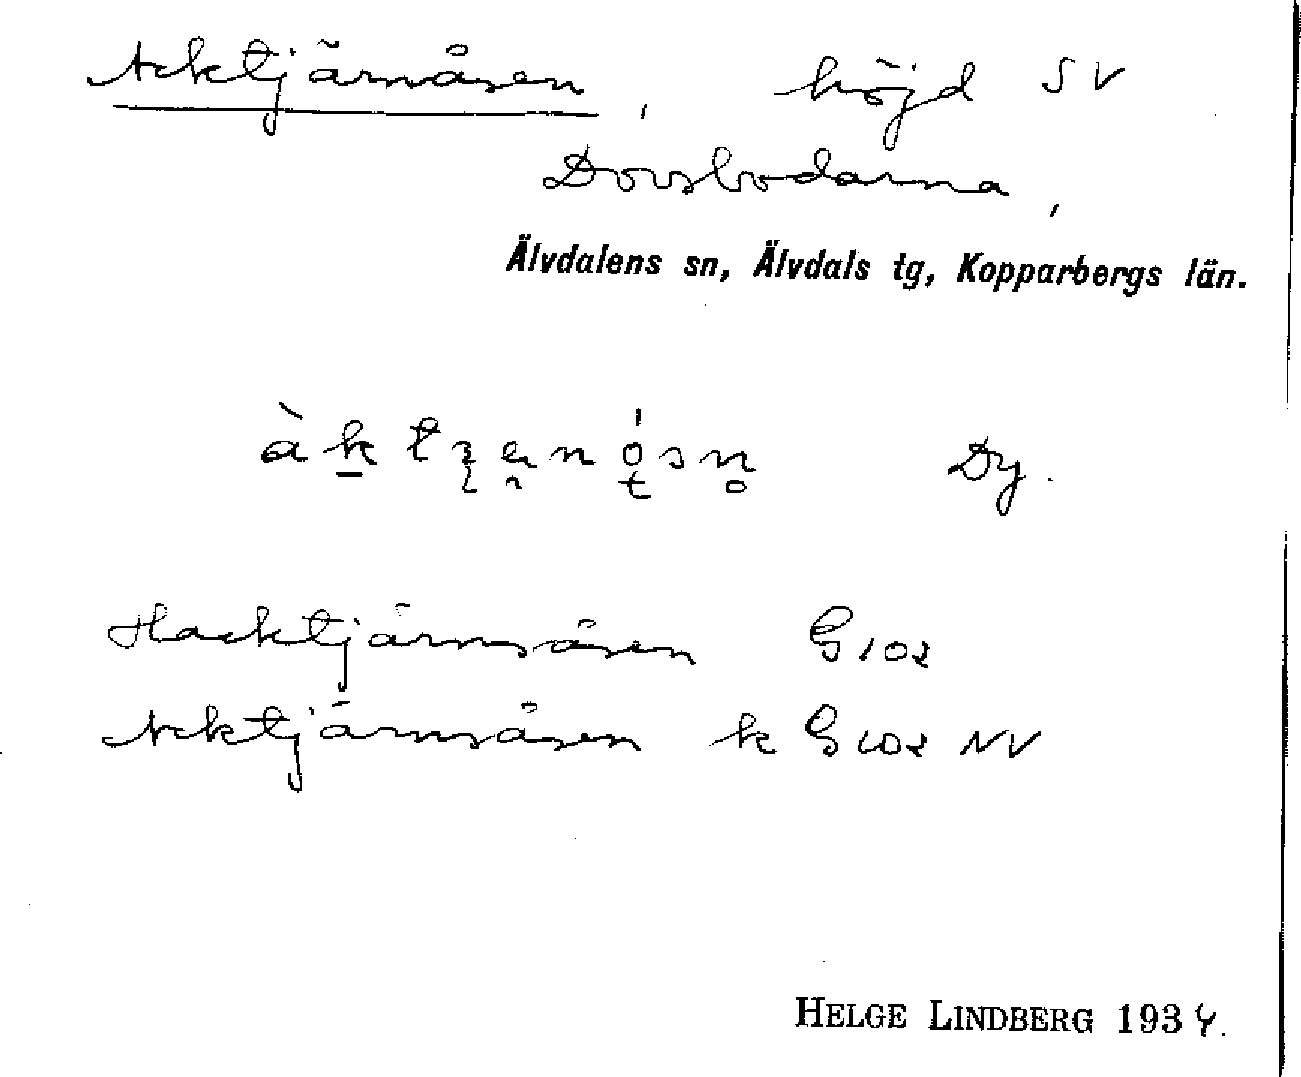 Acktjärnåsen, höjd SV
Dovsbodarna,
Älvdalens sn, Älvdals tg, Kopparbergs län.
Dy.
Hacktjärnsåsen G102
Acktjärnsåsen k G102 NV
HELGE LINDBERG 1934.